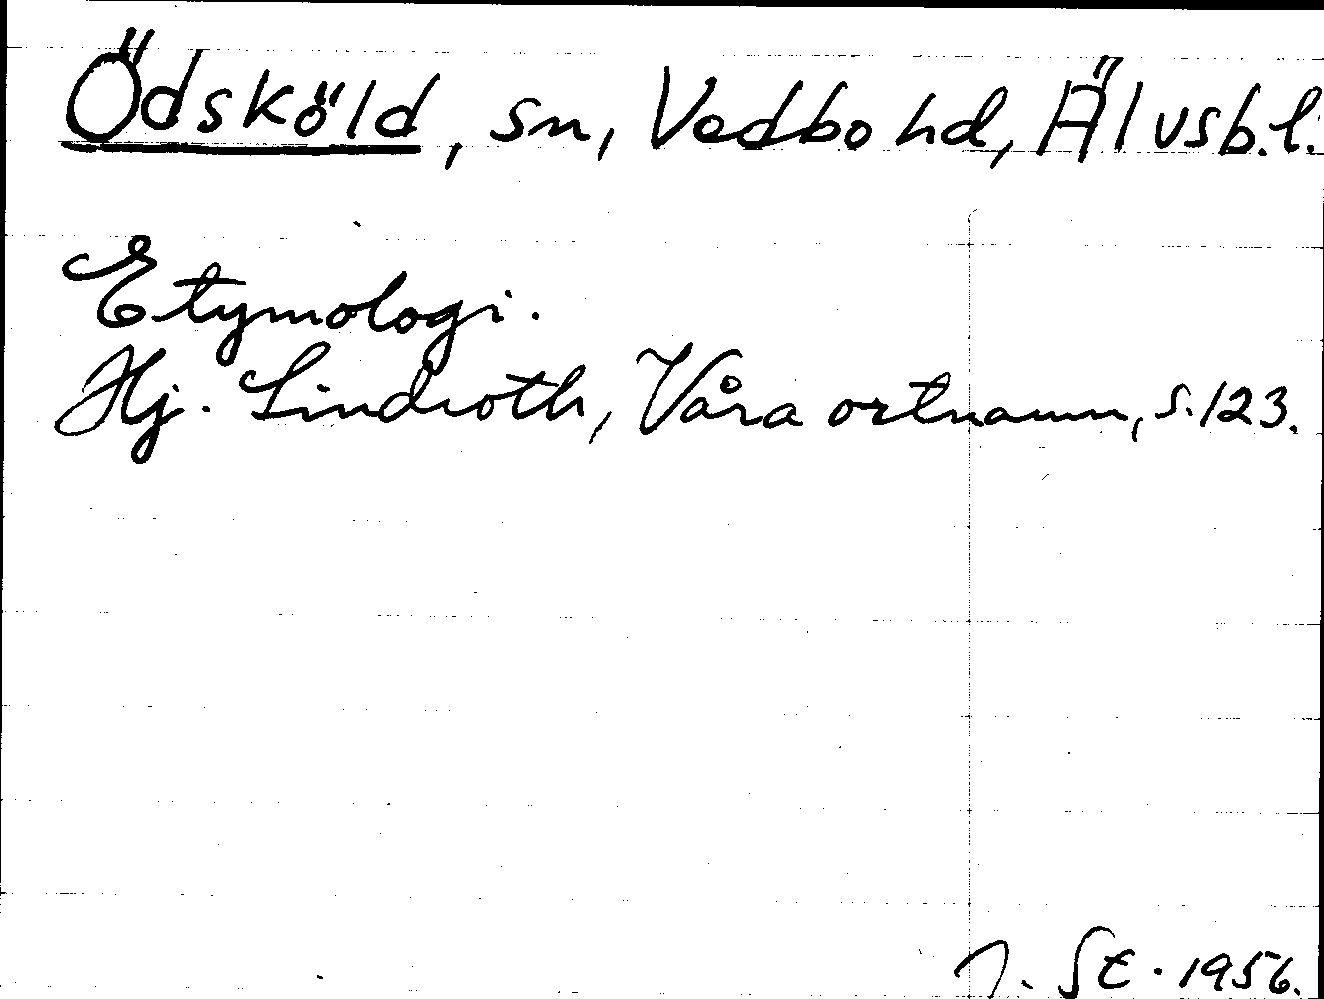 Ödsköld, sn, Vedbo hd, Älvsb.l.
Etymologi.
Hj. Lindroth, Våra ortnamn, s. 123.
J. St. 1956.